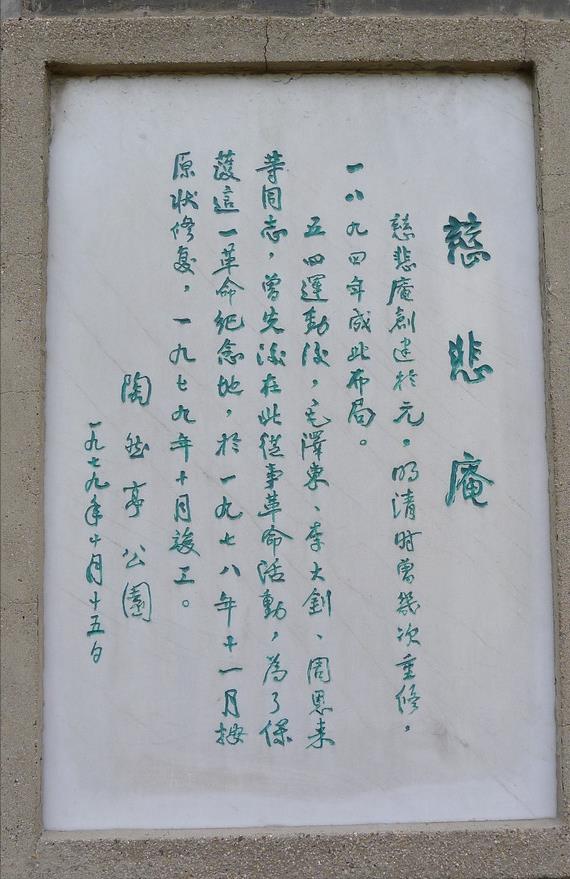 慈悲庵
慈悲庵創建於元。明清時曾幾次重修，
一八九四年成此布局。
五四運動後，毛澤東、李大釗、周恩来
等同志，曾先後在此從事革命活動，為了保
護這一革命纪念地，於一九七八年十一月按
原状修复，一九七九年十月竣工。
陶然亭公園
一九七九年十月十五日